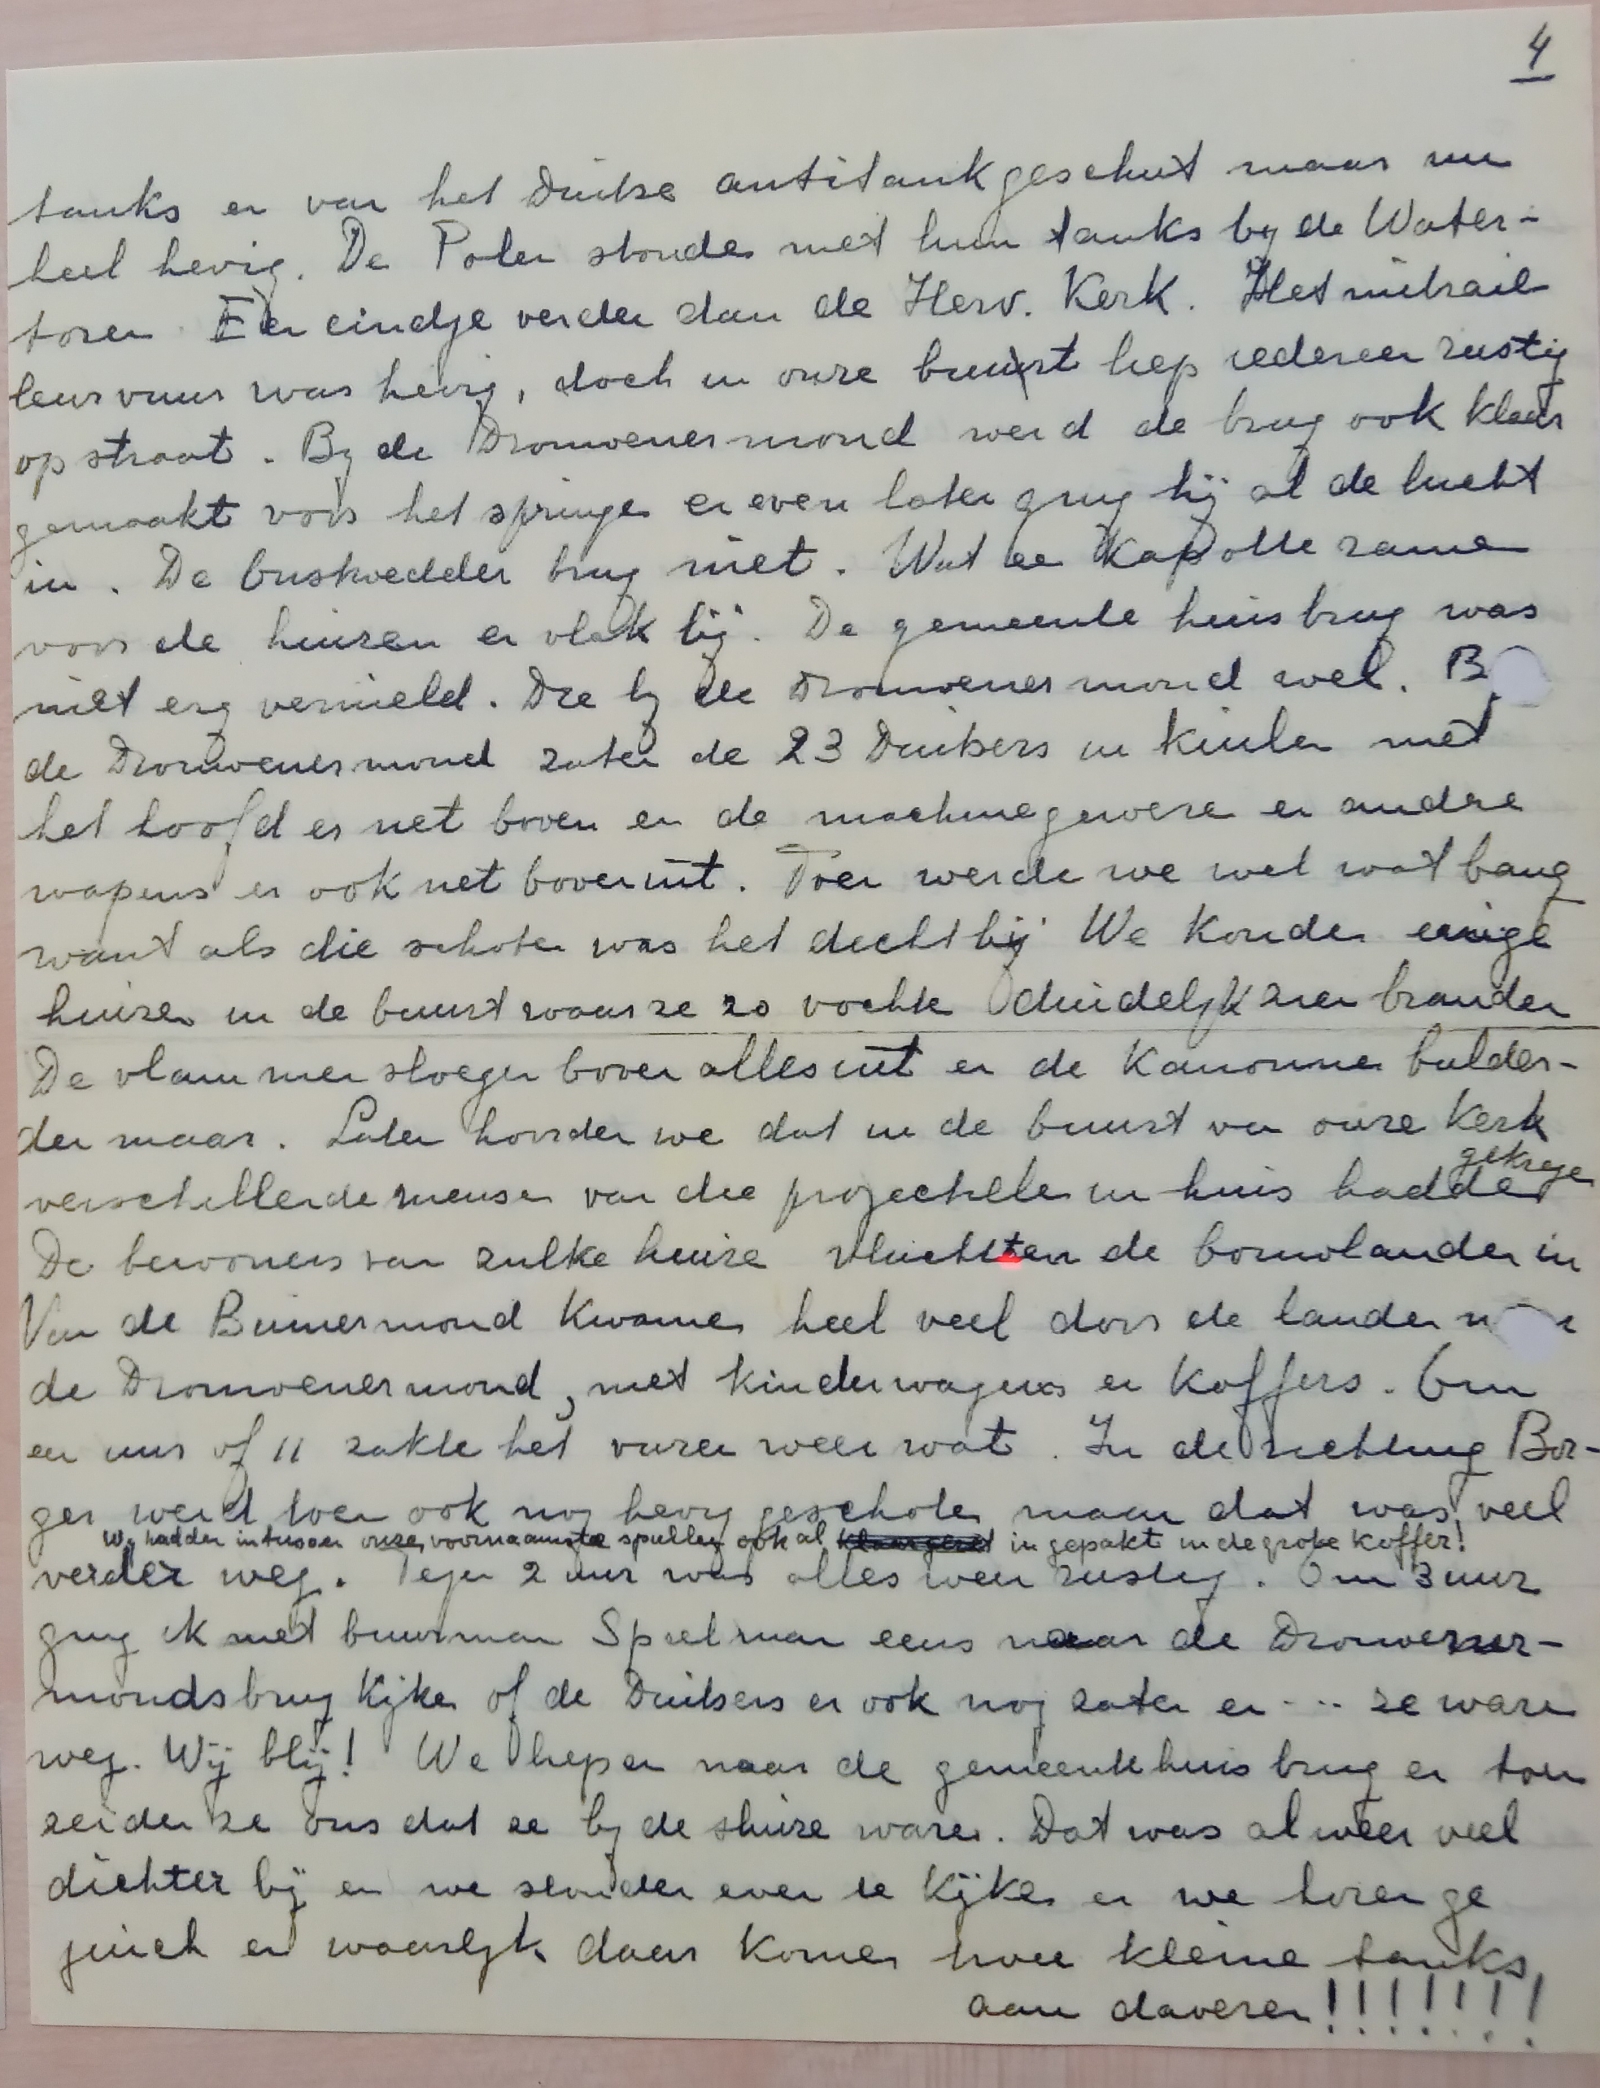 4
tanks en van het Duitse antitankgeschut maar nu
heel hevig. De Polen stonden met hun tanks by de Water-
toren. Een eindje verder dan de Herv. Kerk. Het mitrail
leurvuur was hevig, doch in onze buurt liep iedereen rustig
op straat. By de Drouwenermond werd de brug ook klaar
gemaakt voor het springen en even later ging hij al de lucht
in. De buiskoedder brug niet. Wat een kapotte ramen
voor de huizen er vlak bij. De gemeentehuisbrug was
niet erg vernield. Die by de Drouwenermond wel. B
de Drouwenermond zaten de 23 Duitsers in kuilen met
het hoofd er net boven en de machinegeweren en andre
wapens er ook net boven uit. Toen werden we wel wat bang
want als die schoten was het dicht bij We konden enige
huizen in de buurt waar ze zo vochten duidelijk zien branden
De vlammen sloegen boven alles uit en de kanonnen bulder-
den maar. Later hoorden we dat in de buurt van onze Kerk
verschillende mensen van die projectielen in huis hadden gekregen
De bewoners van zulke huizen vluchtten de bouwlanden in
Van de Buinermond kwamen heel veel door de landen n
de Drouwenermond, met kinderwagens en koffers. Om
een uur of 11 zakte het vuren weer wat. In de richting Bor-
ger werd toen ook nog hevig geschoten maar dat was veel
We hadden intussen onze voornaamste spullen ook al klaargezet ingepakt in de grote koffer!
verder weg. Tegen 2 uur was alles weer rustig. Om 3 uur
ging ik met buurman Speelman eens naar de Drouwener-
mondsbrug kijken of de Duitsers er ook nog zaten en .... ze waren
weg. Wij blij! We liepen naar de gemeentehuisbrug en toen
zeiden ze ons dat ze by de sluize waren. Dat was al weer veel
dichter bij en we stonden even te kijken en we horen ge
juich en waarlijk daar komen twee kleine tanks
aan daveren!!!!!!!